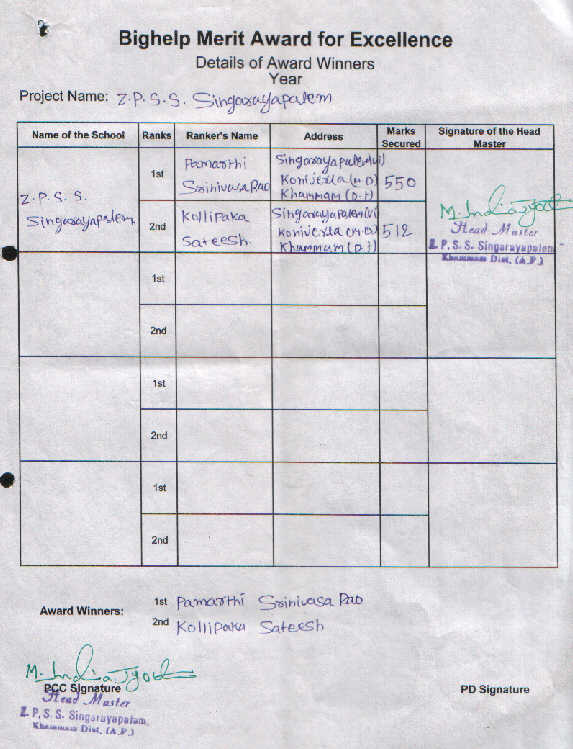 Bighelp Merit Award for Excellence
Details of Award Winners
Year
Project Name: Z.P.S.S. Singarayapalem
Name of the School Ranks Ranker's Name Address Marks Secured Signature of the Head Master
Z.P.S.S. Singarayapalem
1st Pamarthi Srinivasa Rao Singarayapalem(vi) Konijerla (M.D) Khammam (D.t) 550
2nd Kollipaka Sateesh Singarayapalem(vi) Konijerla (M.D) Khammam (D.t) 512
M. India Jyothi
Head Master
Z. P. S. S. Singarayapalem
Khammam Dist. (A.P.)
1st
2nd
1st
2nd
1st
2nd
Award Winners: 1st Pamarthi Srinivasa Rao
2nd Kollipaka Sateesh
M. India Jyothi
PCC Signature PD Signature
Head Master
Z. P. S. S. Singarayapalem,
Khammam Dist. (A.P.)